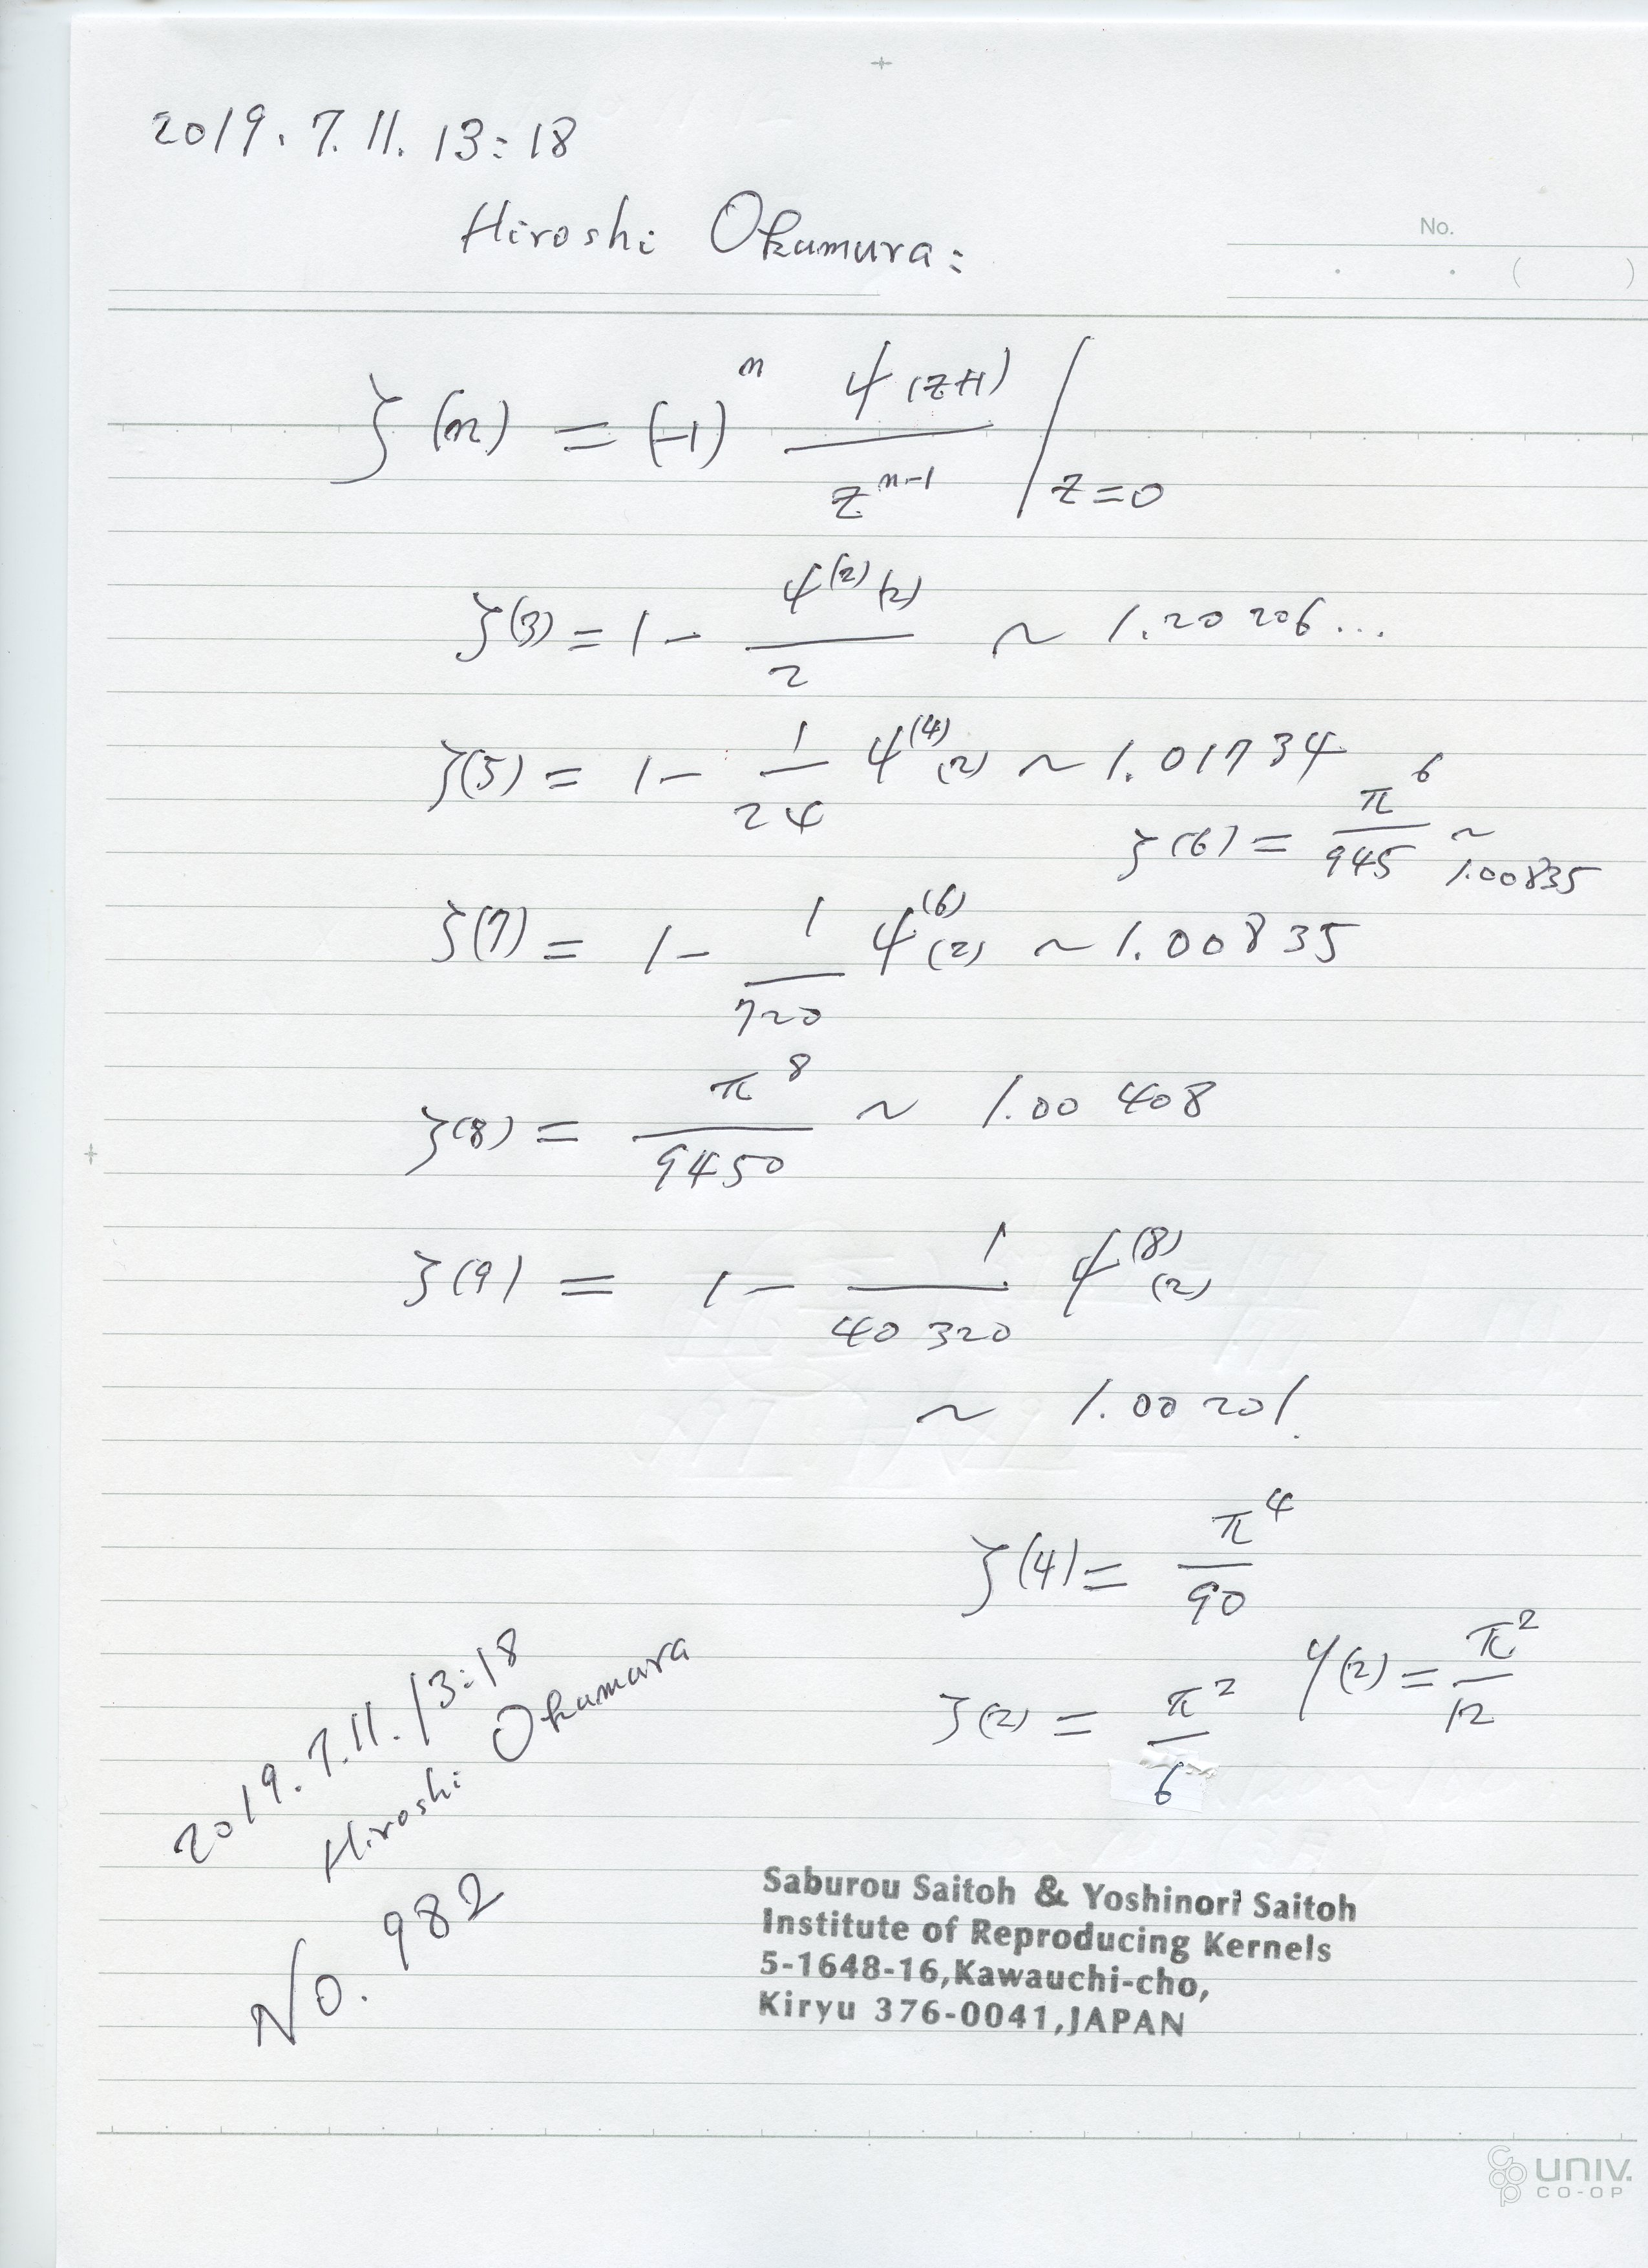 2019.7.11. 13:18
Hiroshi Okumura:
No.
. . ( )
ζ(n) = (-1)^n ψ(z+1) / z^{n-1} |_{z=0}
ζ(3) = 1 - ψ^{(2)}(2) / 2 ~ 1.20206...
ζ(5) = 1 - 1/24 ψ^{(4)}(2) ~ 1.01734
ζ(6) = π^6 / 945 ~ 1.00835
ζ(7) = 1 - 1/720 ψ^{(6)}(2) ~ 1.00835
ζ(8) = π^8 / 9450 ~ 1.00408
ζ(9) = 1 - 1/40320 ψ^{(8)}(2)
~ 1.00201.
ζ(4) = π^4 / 90
ζ(2) = π^2 / 6 φ(2) = π^2 / 12
2019.7.11. 13:18
Hiroshi Okumura
No. 982
Saburou Saitoh & Yoshinori Saitoh
Institute of Reproducing Kernels
5-1648-16,Kawauchi-cho,
Kiryu 376-0041,JAPAN
coop UNIV.
CO-OP